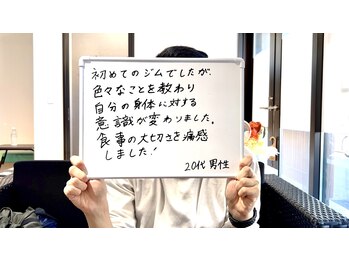 初めてのジムでしたが、
色々なことを教わり
自分の身体に対する
意識が変わりました。
食事の大切さを痛感
しました！
20代 男性